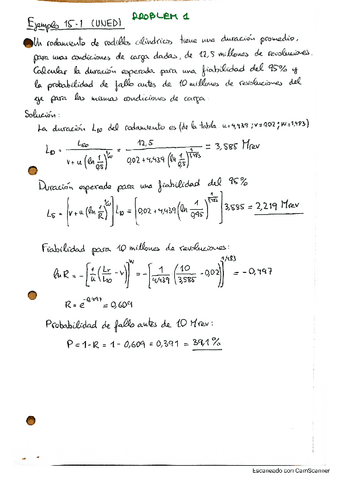 PROBLEM 1
Ejemplo 15-1 (UNED)
Un rodamiento de rodillos cilíndricos tiene una duración promedio,
para unas condiciones de carga dadas, de 12,5 millones de revoluciones.
Calcular la duración esperada para una fiabilidad del 95% y
la probabilidad de fallo antes de 10 millones de revoluciones del
eje para las mismas condiciones de carga.
Solución:
La duración L10 del rodamiento es (de la tabla u=4,439; v=0,02; w=1,483)
L10 = L50 / (v+u(ln 1/0,5)^(1/w)) = 12,5 / (0,02+4,439(ln 1/0,5)^(1/1,483)) = 3,585 Mrev
Duración esperada para una fiabilidad del 95%
L5 = [v+u(ln 1/R)^(1/w)] L10 = [0,02+4,439(ln 1/0,95)^(1/1,483)] 3,585 = 2,219 Mrev
Fiabilidad para 10 millones de revoluciones:
ln R = -[1/u (Lr/L10 - v)]^w = -[1/4,439 (10/3,585 - 0,02)]^1,483 = -0,497
R = e^-0,497 = 0,609
Probabilidad de fallo antes de 10 Mrev:
P = 1-R = 1-0,609 = 0,391 = 39,1%
Escaneado con CamScanner